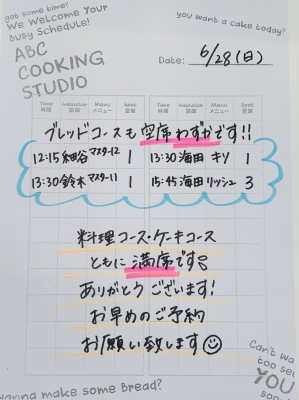 got some time?
We Welcome Your
Busy Schedule!
you want a cake today?
ABC
COOKING
STUDIO
Date: 6/28(日)
Time Instructor Menu Spot Time Instructor Menu Spot
時間 講師 メニュー 空席 時間 講師 メニュー 空席
ブレッドコースも空席わずかです!!
12:15 細谷 マスター12 1 13:30 海田 キソ 1
13:30 鈴木 マスター11 1 15:45 海田 リッシュ 3
料理コース・ケーキコース
ともに満席です
ありがとうございます!
お早めのご予約
お願い致します
Can't wa
too see
YOU
Wanna make some Bread?